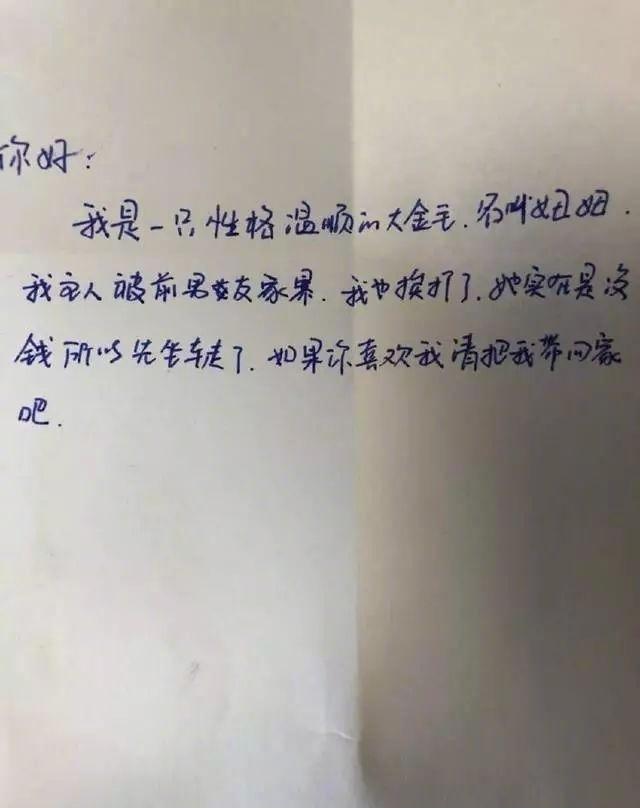 你好:
我是一只性格温顺的大金毛.名叫妞妞.
我主人被前男女友家暴.我也挨打了.她实在是没
钱所以先坐车走了.如果你喜欢我请把我带回家
吧.